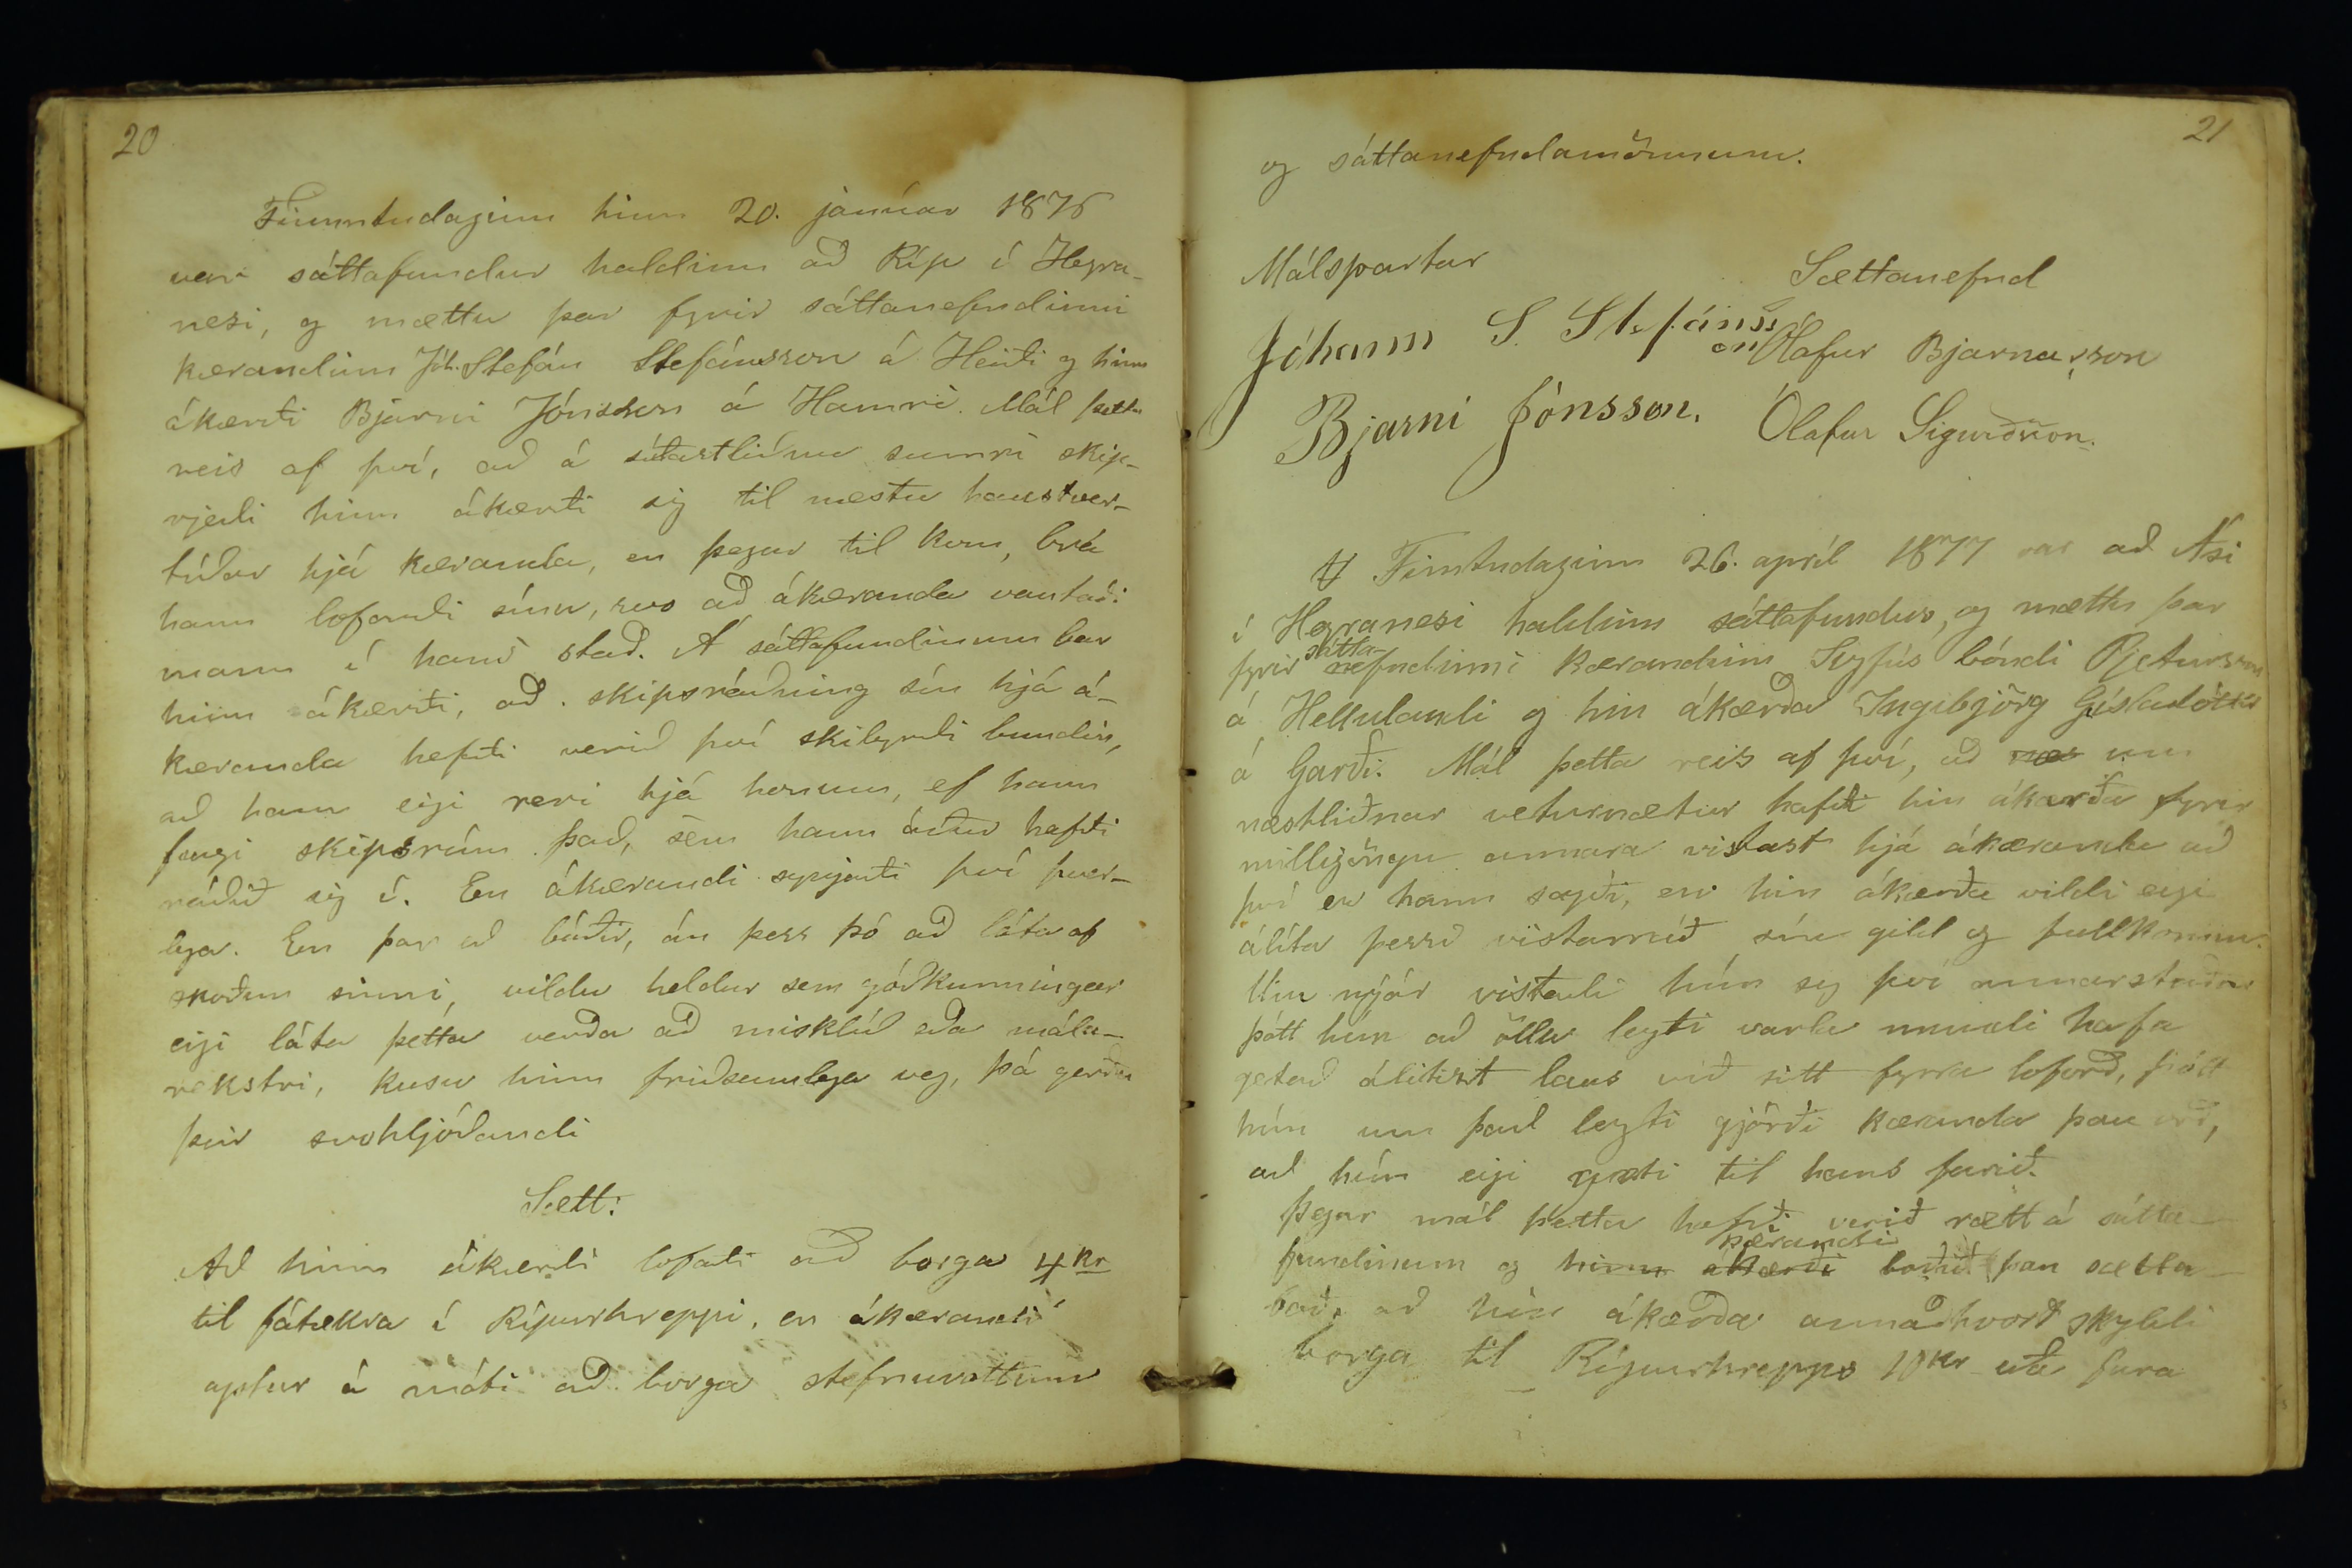 20
Fimmtudaginn hinn 20. janúar 1876
var sáttafundur haldinn að Ríp í Hegra-
nesi, og mættu þar fyrir sáttanefndinni
kærandinn Jóh. Stefán Stefánsson á Heiði og hinn
ákærði Bjarni Jónsson á Hamri. Mál þetta
reis af því, að á síðastliðnu sumri skip-
rjeði hinn ákærði sig til næstu haustver-
tíðar hjá kæranda, en þegar til kom, brá
hann loforði sínu, svo að ákæranda vantaði
mann í hans stað. Á sáttafundinum bar
hinn ákærði, að skipsráðning sín hjá á-
kæranda hefði verið því skilyrði bundin,
að hann eigi reri hjá honum, ef hann
fengi skipsrúm það, sem hann áður hafði
ráðið sig í. En ákærandi synjaði því þver-
lega. En þar eð báðir, án þess þó að láta af
skoðun sinni, vildu heldur sem góðkunningjar
eigi láta þetta verða að misklíð eða mála-
rekstri, kusu hinn friðsamlega veg, þá gerðu
þeir svohljóðandi
Sætt:
Að hinn ákærði lofaði að borga 4 kr
til fátækra í Rípurhreppi, en ákærandi
aptur á móti að borga stefnuvottum
21
og sáttanefndamönnum.
Málspartar
Sættanefnd
Jóhann S. Stefánsson
Ólafur Bjarnarson
Bjarni Jónsson.
Ólafur Sigurðsson.
Fimtudaginn 26. apríl 1877 var að Ási
í Hegranesi haldinn sáttafundur, og mættu þar
fyrir sátta-nefndinni kærandinn Sigfús bóndi Pjetursson
á Hellulandi og hin ákærða Ingibjörg Gísladóttir
á Garði. Mál þetta reis af því, að um
næstliðnar veturnætur hafði hin ákærða fyrir
milligöngu annara vistast hjá ákæranda að
því er hann sagði, en hin ákærða vildi eigi
álíta þessa vistarráð sín gild og fullkomin.
Um nýár vistaði hún sig því annarstaðar
þótt hún að öllu leyti varla mundi hafa
getað álitist laus við sitt fyrra loforð, þótt
hún um það leyti gjörði kæranda þau orð,
að hún eigi gæti til hans farið.
Þegar mál þetta hafði verið rætt á sátta-
fundinum og hinn ákærði kærandi boðið þau sætta-
boð, að hin ákærða annaðhvort skyldi
borga til Rípurhrepps 10 kr eða fara